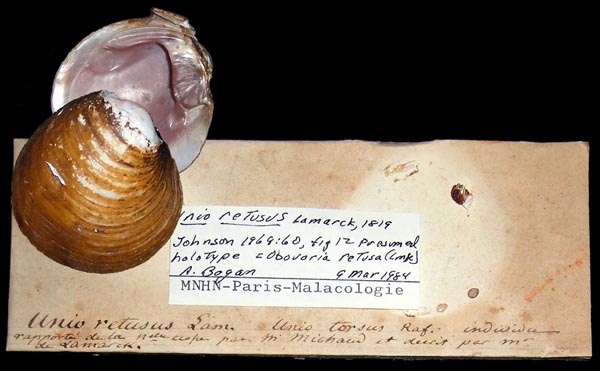 Unio retusus Lamarck, 1819
Johnson 1969:60, fig 12 presumed
holotype = Obovaria retusa (Lmk)
A. Bogan 9 Mar 1984
MNHN-Paris-Malacologie
Unio retusus Lam. Unio torsus Raf. individu
rapporté de la par mr Michaud et décrit par mr
de Lamarck.